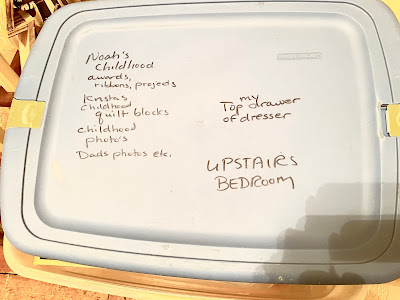 Noah's
Childhood
awards,
ribbons, projects
Kristas
Childhood
quilt blocks
childhood
photo's
Dads photos etc.
my
Top drawer
of dresser
UPSTAIRS
BEDROOM